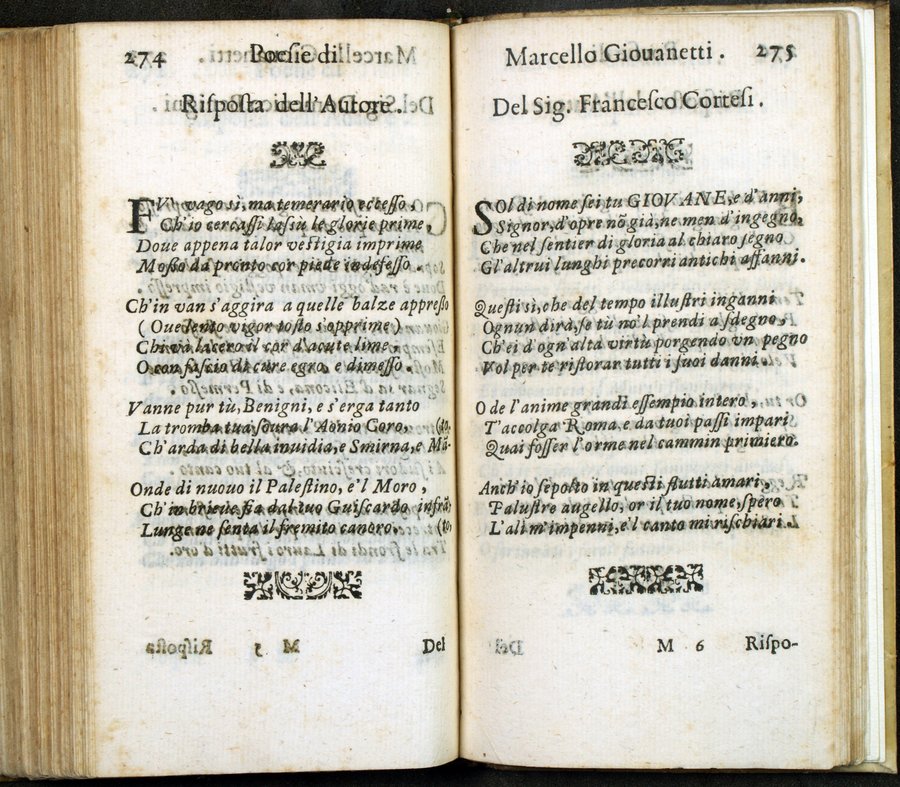 274 Poesie di
Risposta dell'Autore.
FVū vago sì, ma temerario eccesso
Ch'io cercassi lassù le glorie prime,
Doue appena talor vestigia imprime
Mosso da pronto cor piede indefesso.
Ch'in van s'aggira a quelle balze appresso
(Oue lento vigor tosto s'opprime)
Chi và lacero il cor d'acute lime,
O con fascio di cure egro, e dimesso.
Vanne pur tù, Benigni, e s'erga tanto
La tromba tua soura l'Aonio Coro,
Ch'arda di bella inuidia, e Smirna, e Mā- (to,
Onde di nuouo il Palestino, e'l Moro,
Ch'in brieue fia dal tuo Guiscardo infrā-
Lunge ne senta il fremito canoro. (to,
Del
Marcello Giouanetti. 275
Del Sig. Francesco Cortesi.
SOl di nome sei tu GIOVANE, e d'anni,
Signor, d'opre nō già, ne men d'ingegno,
Che nel sentier di gloria al chiaro segno
Gl'altrui lunghi precorri antichi affanni.
Questi sì, che del tempo illustri inganni
Ognun dirà, se tù no'l prendi a sdegno,
Ch'ei d'ogn'alta virtù porgendo vn pegno
Vol per te ristorar tutti i suoi danni.
O de l'anime grandi essempio intero,
T'accolga Roma, e da tuoi passi impari
Quai fosser l'orme nel cammin primiero.
Anch'io sepolto in questi flutti amari,
Palustre augello, or il tuo nome, spero
L'ali m'impenni, e'l canto mi rischiari.
M 6 Rispo-